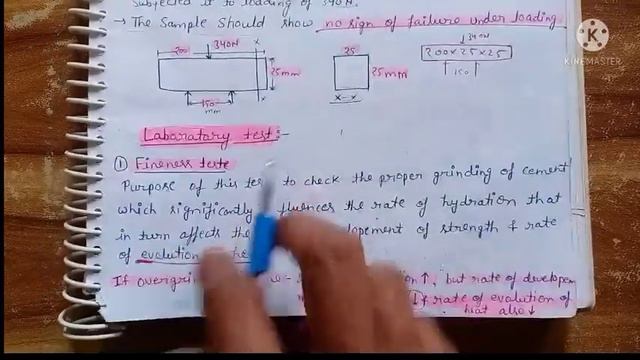 Subjected it to loading of 340N.
→ The Sample should show no sign of failure under loading
K
KINEMASTER
200
340N
x
25 mm
150
mm
x
25
25 mm
x-x
↓340N
200×25×25
150
Labaratary test:-
① Fineness test
Purpose of this to check the proper grinding of cement
which significantly the rate of hydration that
in turn affects the of strength & rate
of evolution
If ↑, but rate of
↓ & rate of evolution of
heat also↓